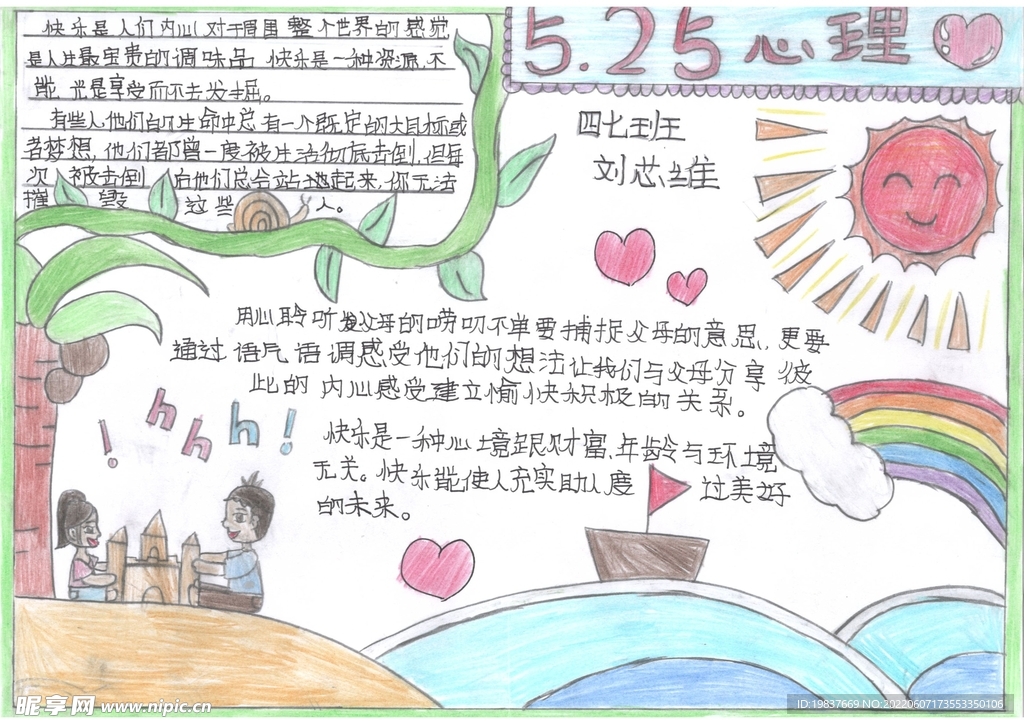 快乐是人们内心对于周围整个世界的感觉
是人生最宝贵的调味品 快乐是一种资源,不
能 光是享受而不去发掘。
有些人他们的生命中总有一个既定的大目标或
者梦想,他们都曾一度被生活彻底击倒,但每
次 被击倒 后他们总会站起来,你无法
摧 毁 这些 人。
5.25心理
四七班
刘芯维
用心聆听父母的唠叨不单要捕捉父母的意思,更要
通过语气语调感受他们的想法让我们与父母分享彼
此的内心感受建立愉快积极的关系。
hhh!
快乐是一种心境跟财富,年龄与环境
无关。快乐能使人充实助人度过美好
的未来。
昵享网 www.nipic.cn
ID:19837669 NO:20220607173553350106